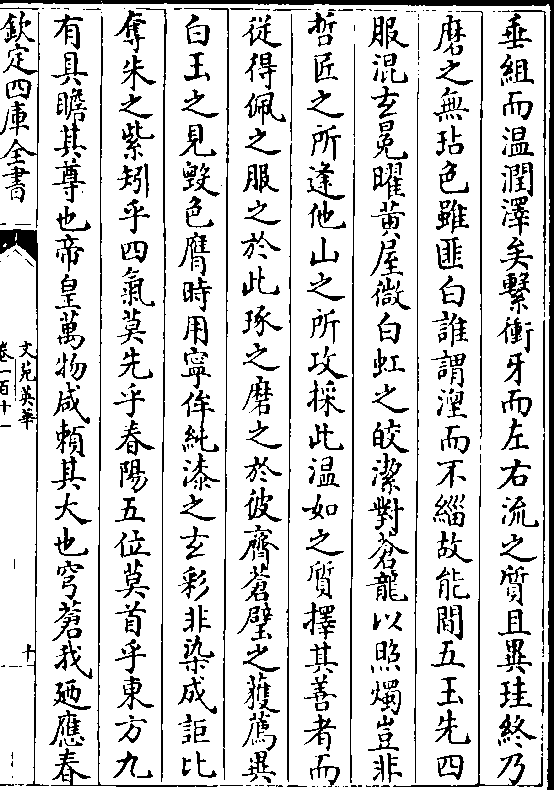 垂組而温潤澤矣繫衝牙而左右流之質且異珪終乃
磨之無玷色雖匪白誰謂湼而不緇故能間五玉先四
服混玄冕曜黄屋微白虹之皎潔對蒼龍以照燭豈非
哲匠之所逢他山之所攻採此温如之質擇其善者而
從得佩之服之於此琢之磨之於彼齊蒼璧之䕶薦異
白玉之見毁色膺時用寧侔純漆之玄彩非染成詎比
奪朱之紫矧乎四氣莫先乎春陽五位莫首乎東方九
有具瞻其尊也帝皇萬物咸賴其大也穹蒼我廼應春
欽定四庫全書
文苑英華
卷一百十一
十